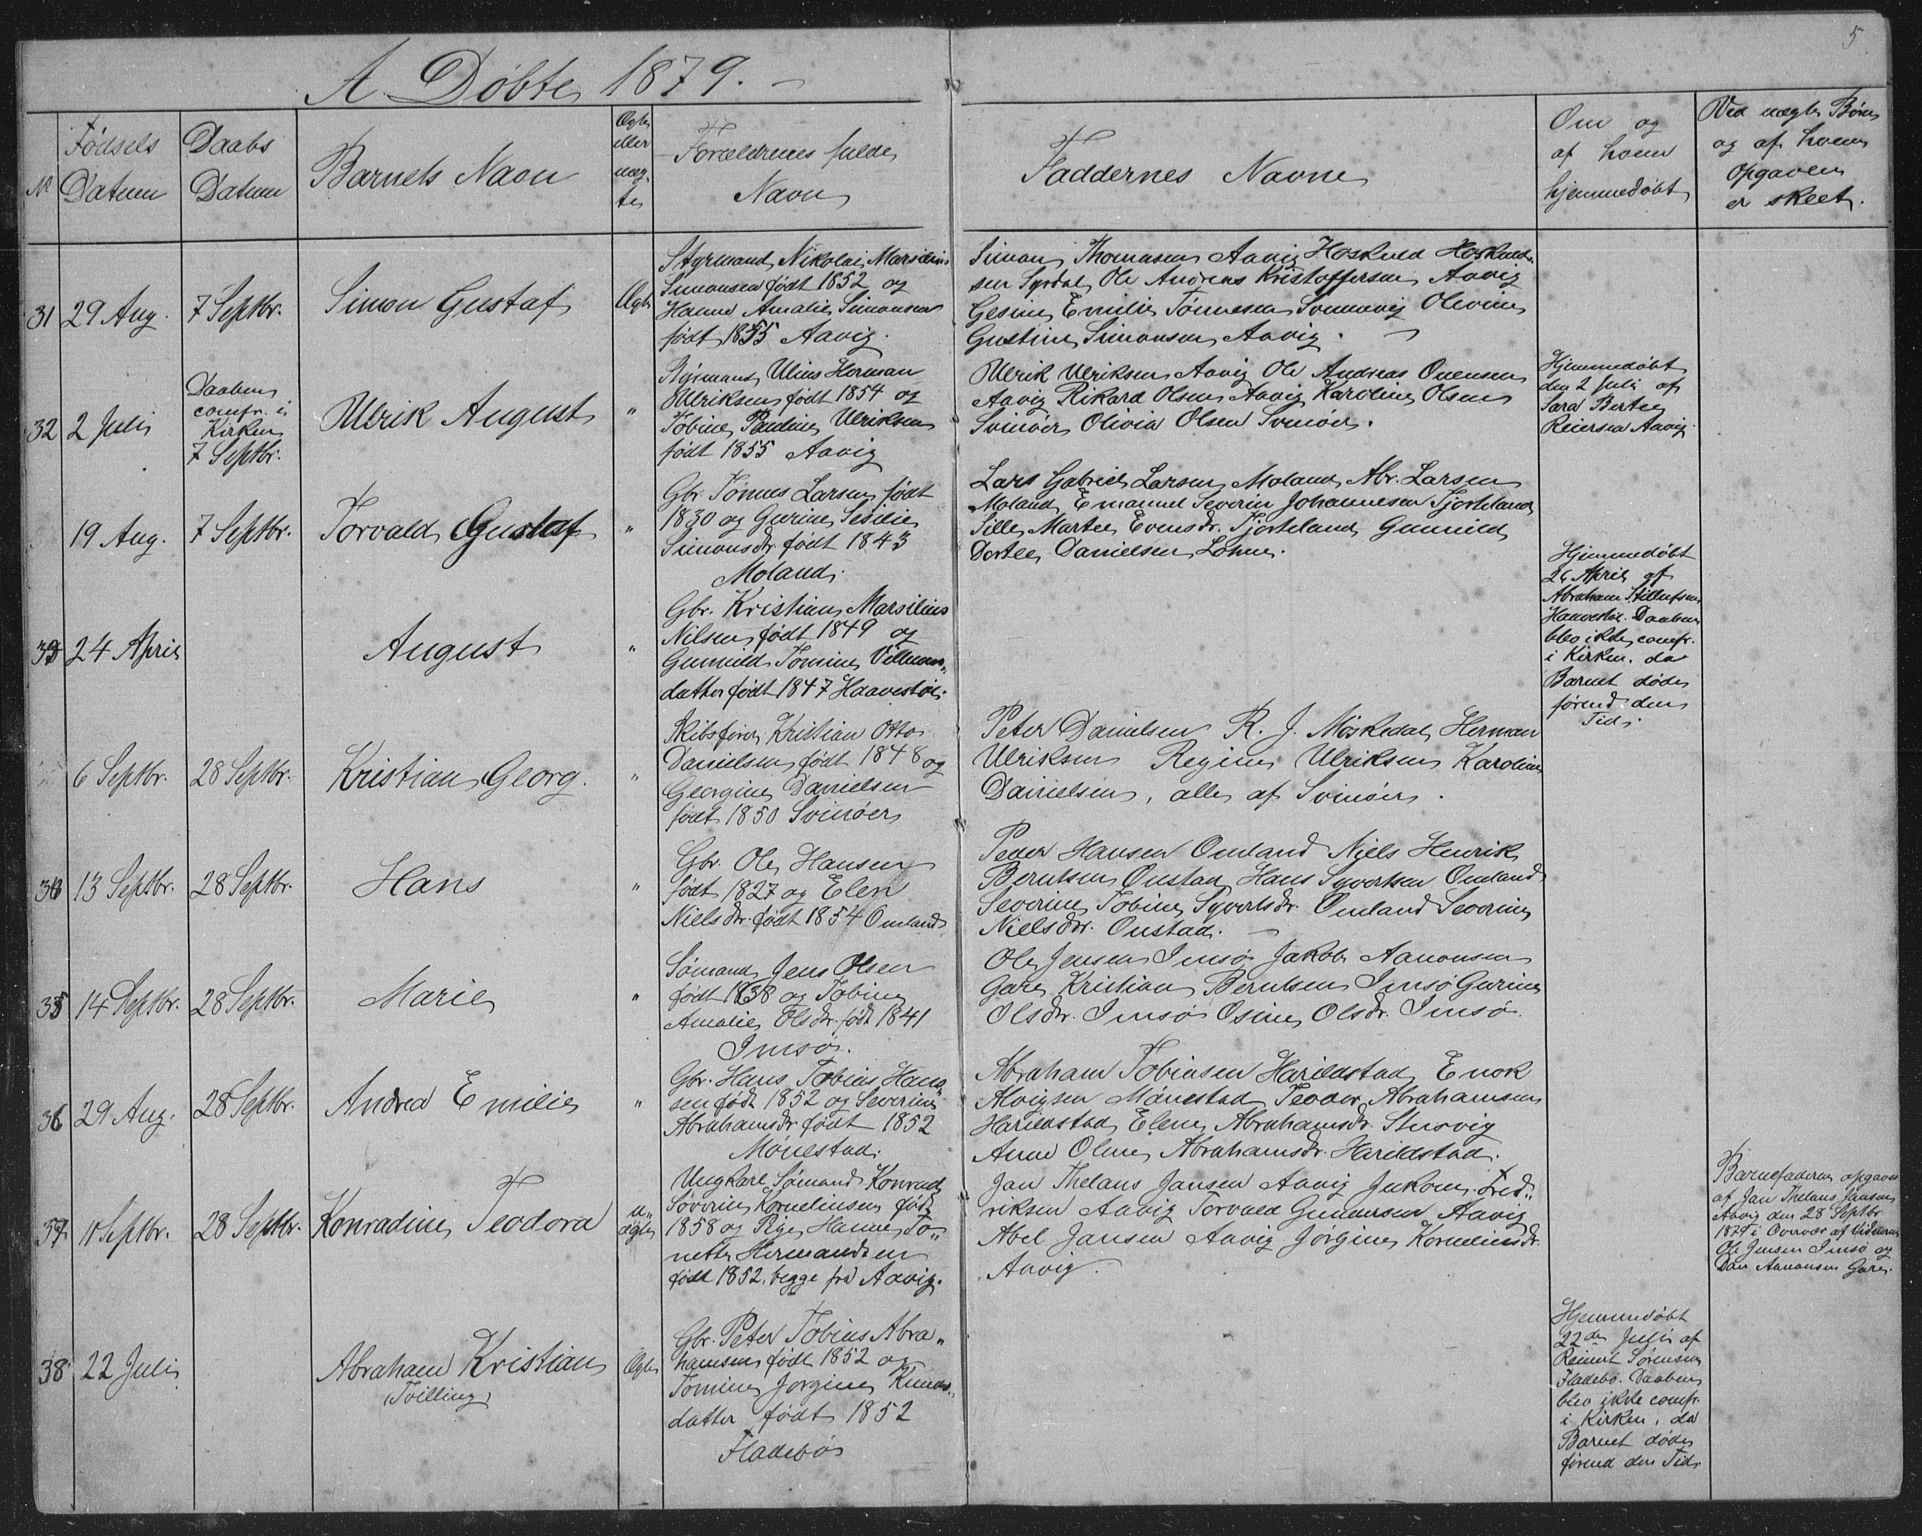 5
A. Døbte 1879.
No
Fødsels
Datum
Daabs
Datum
Barnets Navn
Ægte
eller
uæg-
te
Forældrenes fulde
Navn
Faddernes Navne
Om og
af hvem
hjemmedøbt
Ved uægte Børn
og af hvem
Opgaven
er skeet.
31
29 Aug.
7 Septbr.
Simon Gustaf
Ægte
Styrmand Nikolai Marsilius
Simonsen født 1852 og
Hanne Amalie Simonsen
født 1855 Aavig.
Simon Thomasen Aavig Hoskuld Hoskuld-
sen Syrdal Ole Andreas Kristoffersen Aavig
Gesine Emilie Tønnesen Svennevig Olevine
Gustine Simonsen Aavig.
32
2 Juli
Daaben
comfr. i
Kirken
7 Septbr.
Ulrik August
"
Ulius Herman
Ulriksen født 1854 og
Tobine Pauline Ulriksen
født 1855 Aavig
Ulrik Ulriksen Aavig Ole Andreas Ouensen
Aavig Rikard Olsen Aavig Karoline Olsen
Svinøer Olivia Olsen Svinøer.
Hjemmedøbt
den 2 Juli af
Sara Bertee
Reiersen Aavig.
19 Aug.
7 Septbr.
Torvald Gustaf
"
Gbr. Tønnes Larsen født
1830 og Gurine Sesilie
Simonsdr. født 1843
Moland.
Lars Gabriel Larsen Moland Abr. Larsen
Moland Emanuel Severin Johannesen Tjorteland
Sille Martee Evensdr. Tjorteland Gunnild
Dortee Danielsen Lohne.
33
24 April
August
"
Gbr. Kristian Marsilius
Nilsen født 1849 og
Gunnild Tomine Villums-
datter født 1847 Haavestøl.
Hjemmedøbt
26 April af
Abraham Stillufsen
Haavestøl. Daaben
blev ikke comfr.
i Kirken, da
Barnet døde
førend den
Tid.
6 Septbr.
28 Septbr.
Kristian Georg.
"
Skibsfører Kristian Otto
Danielsen født 1848 og
Georgine Danielsen
født 1850 Svinøer
Peter Danielsen R. J. Møskedal Herman
Ulriksen Regine Ulriksen Karoline
Danielsen, alle af Svinøer.
13 Septbr.
28 Septbr.
Hans
"
Gbr. Ole Hansen
født 1827 og Elen
Nielsdr. født 1854 Omland
Peder Hansen Omland Niels Henrik
Berntsen Onstad Hans Syvertsen Omland
Severine Tobine Syvertsdr. Omland Severine
Nielsdr. Onstad.
35
14 Septbr.
28 Septbr.
Marie
"
Sømand Jens Olsen
født 1838 og Tobine
Amalie Olsdr. født 1841
Imsø.
Ole Jensen Imsø Jakob Aanonsen
Gare Kristian Berntsen Imsø Gurine
Olsdr. Imsø Osine Olsdr. Imsø.
36
29 Aug.
28 Septbr.
Andrea Emilie
"
Gbr. Hans Tobias Han-
sen født 1852 og Severine
Abrahamsdr. født 1852
Mønestad.
Abraham Tobiasen Harildstad Enok
Alvigsen Mønestad Teodor Abrahamsen
Harildstad Elene Abrahamsdr. Stusvig
Anne Olene Abrahamsdr. Harildstad.
37
11 Septbr.
28 Septbr.
Konradine Teodora
u-
ægte
Ungkarl Sømand Konrad
Søverin Kornelinsen født
1858 og Pige Hanne To-
nette Hermandsen
født 1852, begge fra Aavig.
Jan Thelans Jansen Aavig Fred-
riksen Aavig Torvald Gundersen Aavig
Abel Jansen Aavig Jørgine Korneliusdr.
Aavig.
Barnefaderen opgaves
af Jan Thelans Jansen
Aavig den 28 Septbr
1879 i Overvær af Vidnerne
Ole Jensen Imsø og
Dan Aanonsen Gare.
38
22 Juli
Abraham Kristian
(Tvilling)
Ægte
Gbr. Peter Tobias Abra-
hamsen født 1852 og
Tomine Jorgine Knuds-
datter født 1852
Fladebø
Hjemmedøbt
22de Juli af
Reinert Sørensen
Fladebø. Daaben
blev ikke comfr.
i Kirken, da
Barnet døde
førend den Tid.